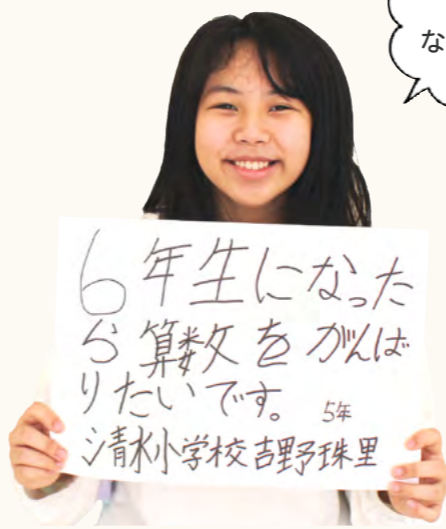 な
6年生になった
ら算数をがんば
りたいです。 5年
清水小学校吉野珠里